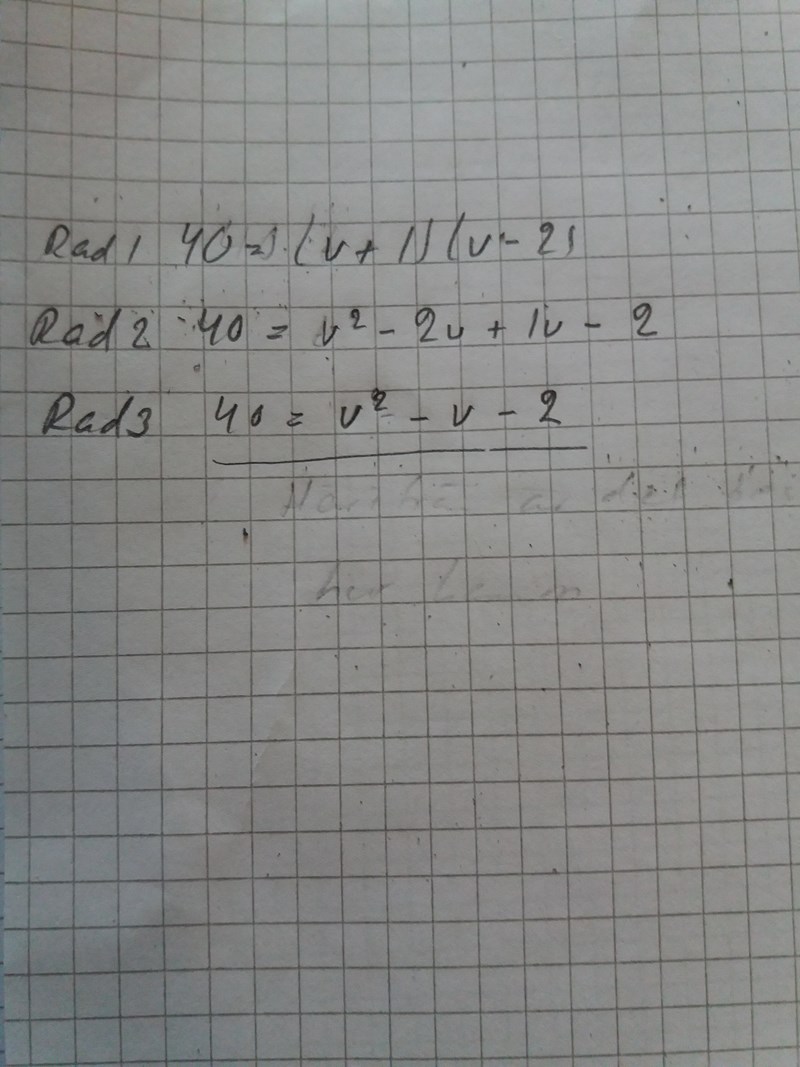 Rad 1 40 = (v + 1) (v - 2)
Rad 2 40 = v² - 2v + 1v - 2
Rad 3 40 = v² - v - 2